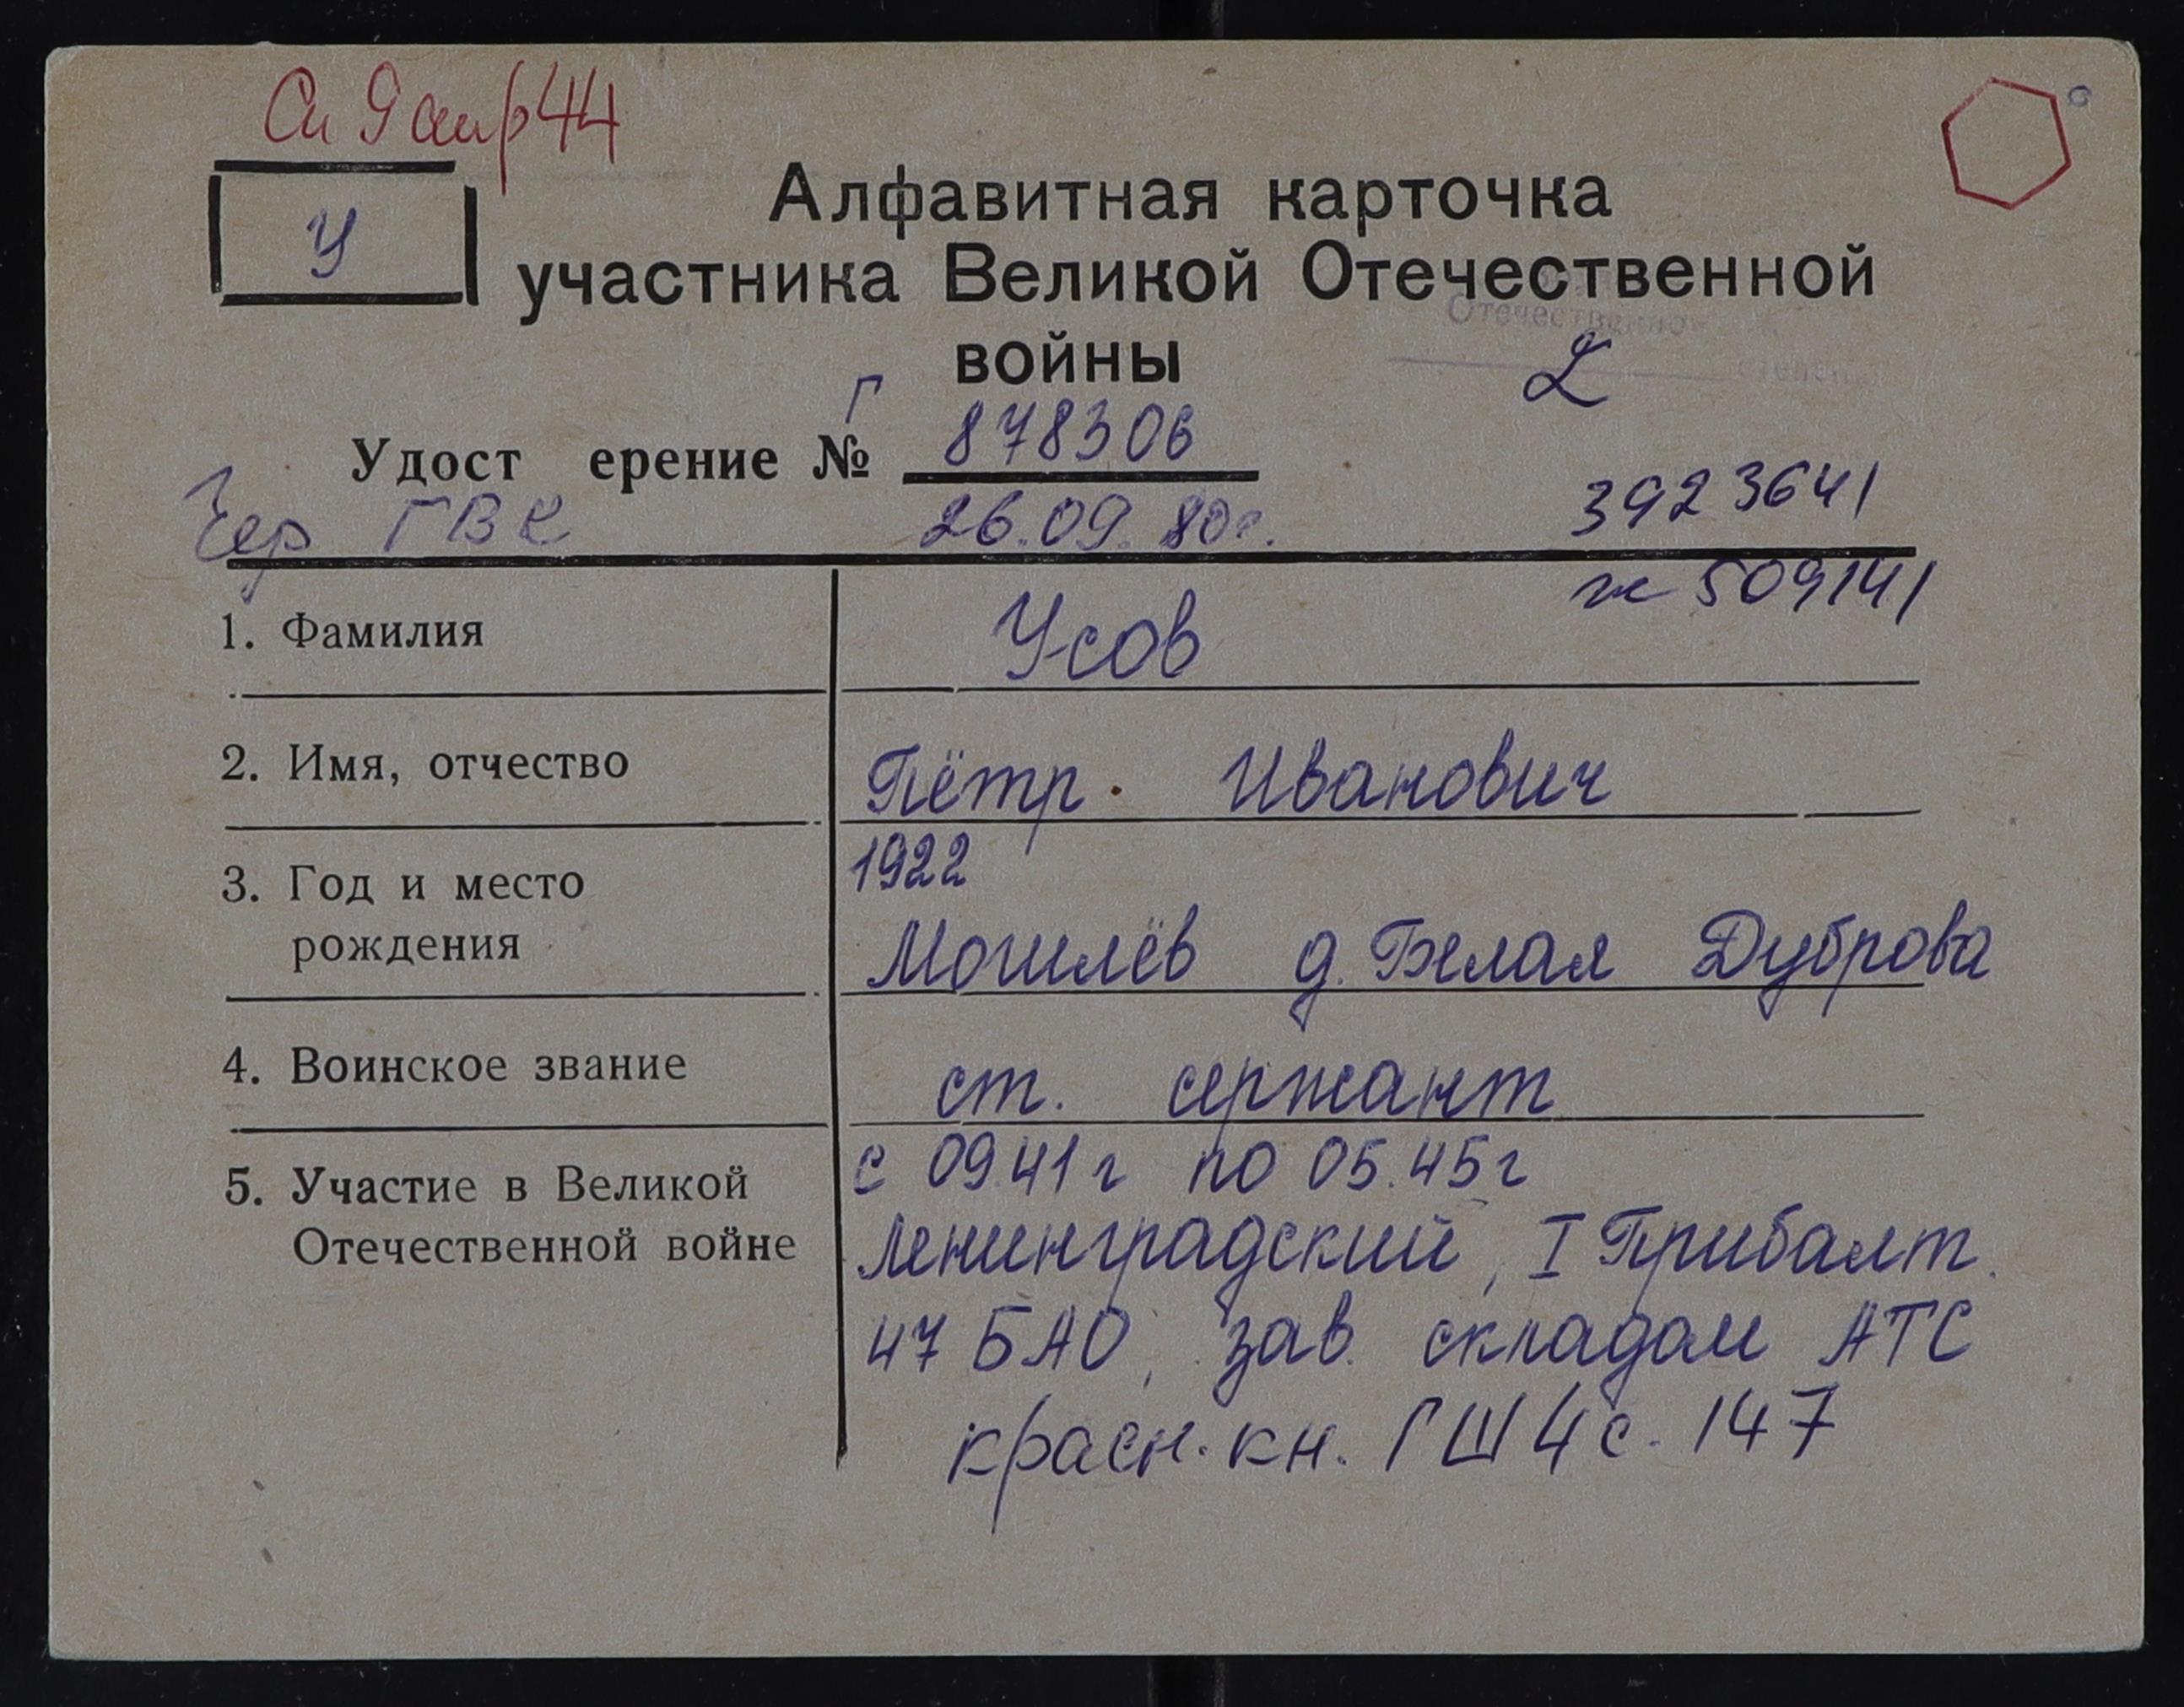 9 апр 44
У
Алфавитная карточка
участника Великой Отечественной
войны
Отечественной
степени
2
Г
Удост ерение № 878306
Чер ГВК 26.09.80г.
3923641
ж 509141
1. Фамилия Усов
2. Имя, отчество Пётр Иванович
3. Год и место 1922
рождения Могилёв д. Белая Дуброва
4. Воинское звание ст. сержант
5. Участие в Великой с 09.41г по 05.45г
Отечественной войне Ленинградский, I Прибалт.
47 БАО, зав. складом АТС
красн. кн. ГШ 4 с. 147